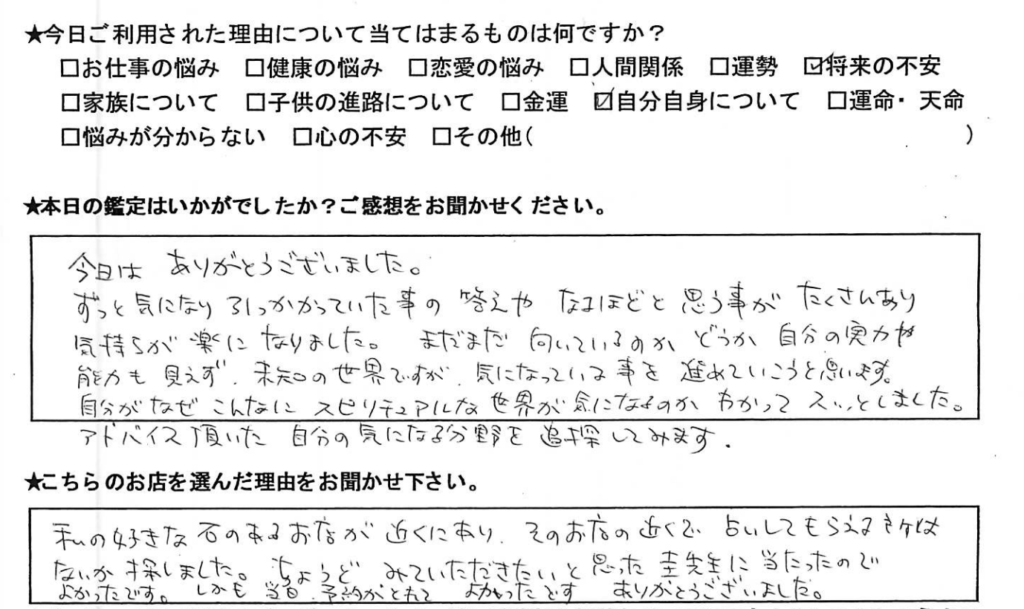 ★今日ご利用された理由について当てはまるものは何ですか？
□お仕事の悩み　□健康の悩み　□恋愛の悩み　□人間関係　□運勢　☑将来の不安
□家族について　□子供の進路について　□金運　☑自分自身について　□運命・天命
□悩みが分からない　□心の不安　□その他(　　　　　　　)
★本日の鑑定はいかがでしたか？ご感想をお聞かせください。
今日は ありがとうございました。
ずっと気になり引っかかっていた事の 答えや なるほどと 思う事が たくさんあり
気持ちが 楽に なりました。 まだまだ 向いているのか どうか 自分の実力や
能力も 見えず、未知の世界ですが、気になっている事を 進めていこうと思います。
自分がなぜ こんなに スピリチュアルな 世界が 気になるのか わかって スッとしました。
アドバイス頂いた 自分の気になる分野を 追探してみます.
★こちらのお店を選んだ理由をお聞かせ下さい。
私の好きな 石のあるお店が 近くにあり、そのお店の近くで 占いしてもらえる所は
ないか 探しました。 ちょうど みていただきたいと 思った 圭先生に 当たったので
よかったです。 しかも 当日 予約がとれて よかったです ありがとうございました。